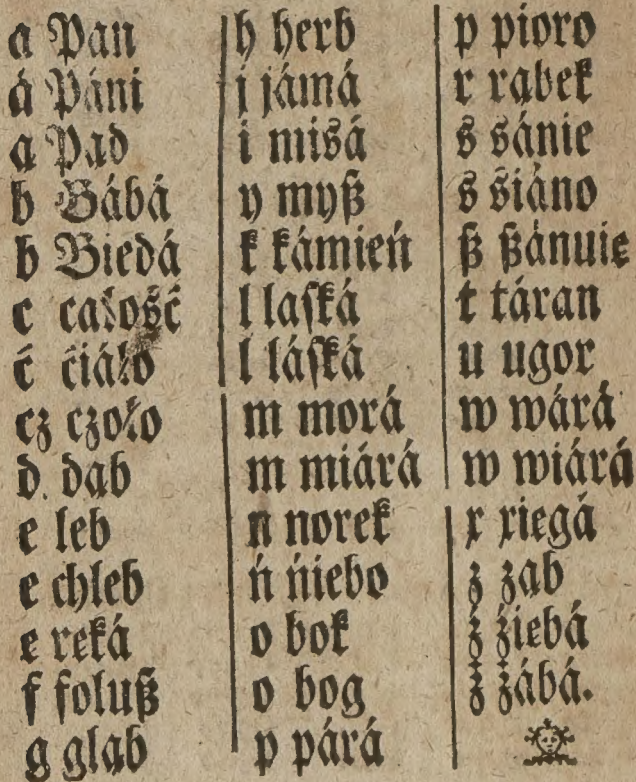 a Pan
á Páni
ą Pąd
b Bábá
b Biedá
c całość
ć ćiáło
cz czoło
d dąb
e leb
e chleb
ę ręká
f foluß
g gląb
h herb
j jámá
i misá
y myß
k kámień
l laſká
l láſká
m morá
m miárá
n norek
ń ńiebo
o bok
o bog
p párá
p pioro
r rąbek
s sánie
ś śiáno
ß ßánuie
t táran
u ugor
w wárá
w wiárá
x xięgá
z ząb
ź źiębá
ż żábá.